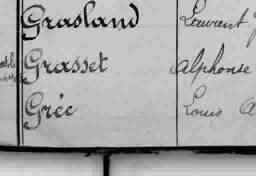 Grasland Laurent
Grasset Alphonse
Grée Louis A